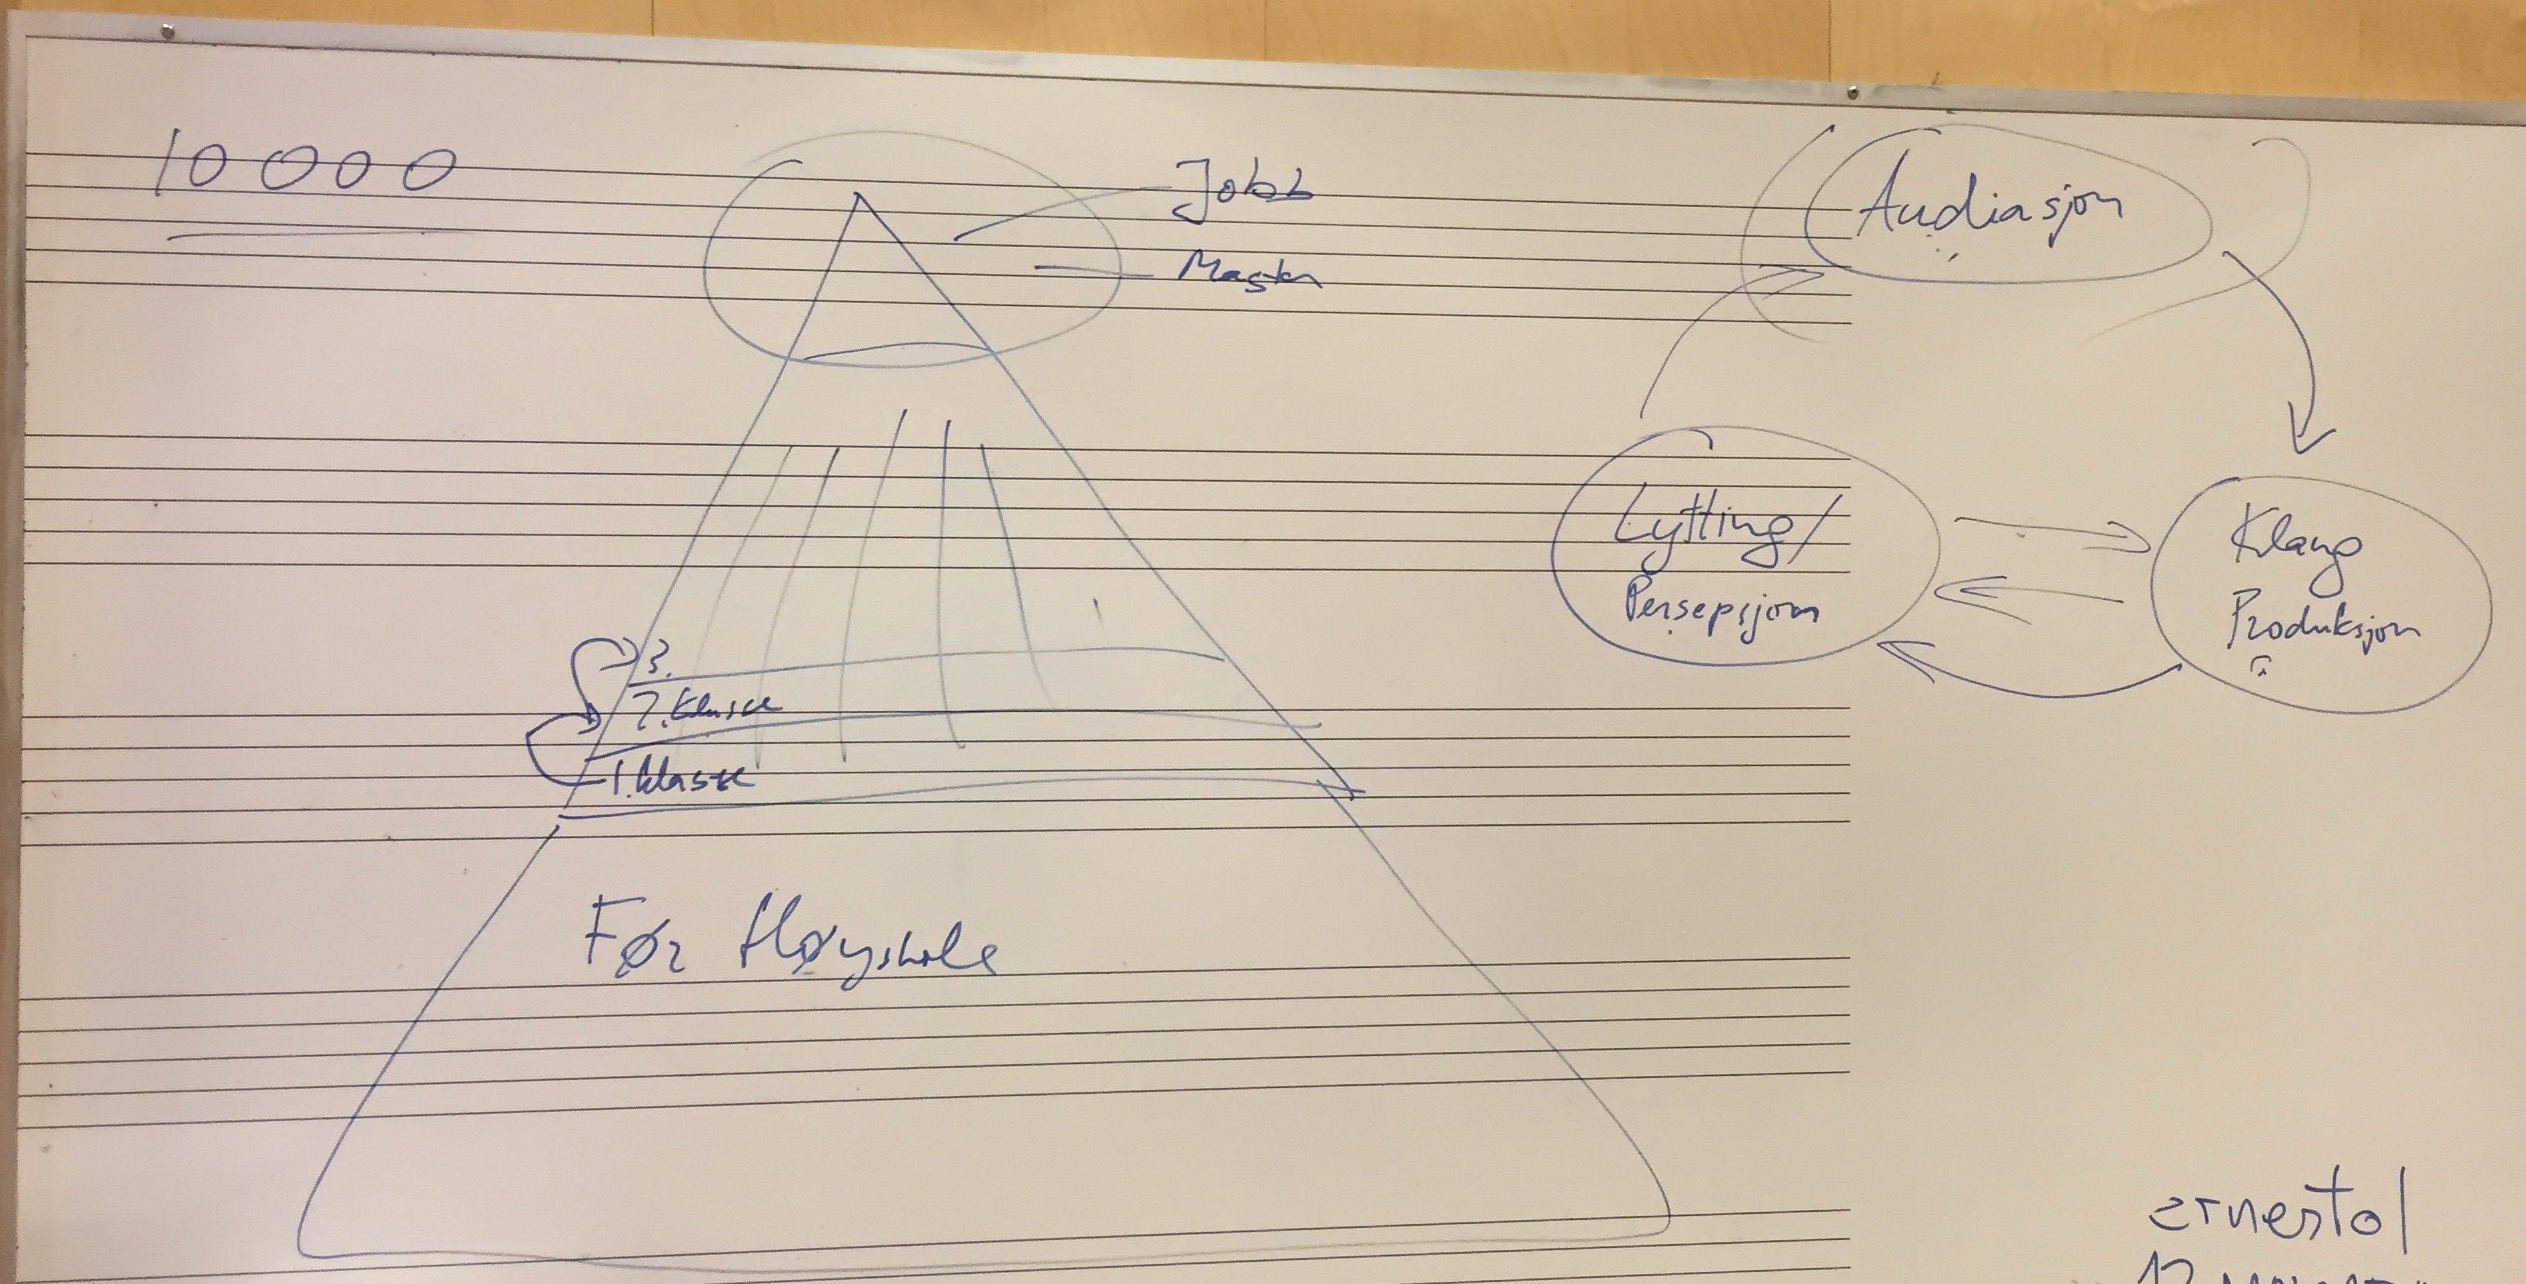 10000
Jobb
Master
3.
2. klasse
1. klasse
Før Høyskole
Audiasjon
Lytting/
Persepsjon
Klang
Produksjon
ernestol